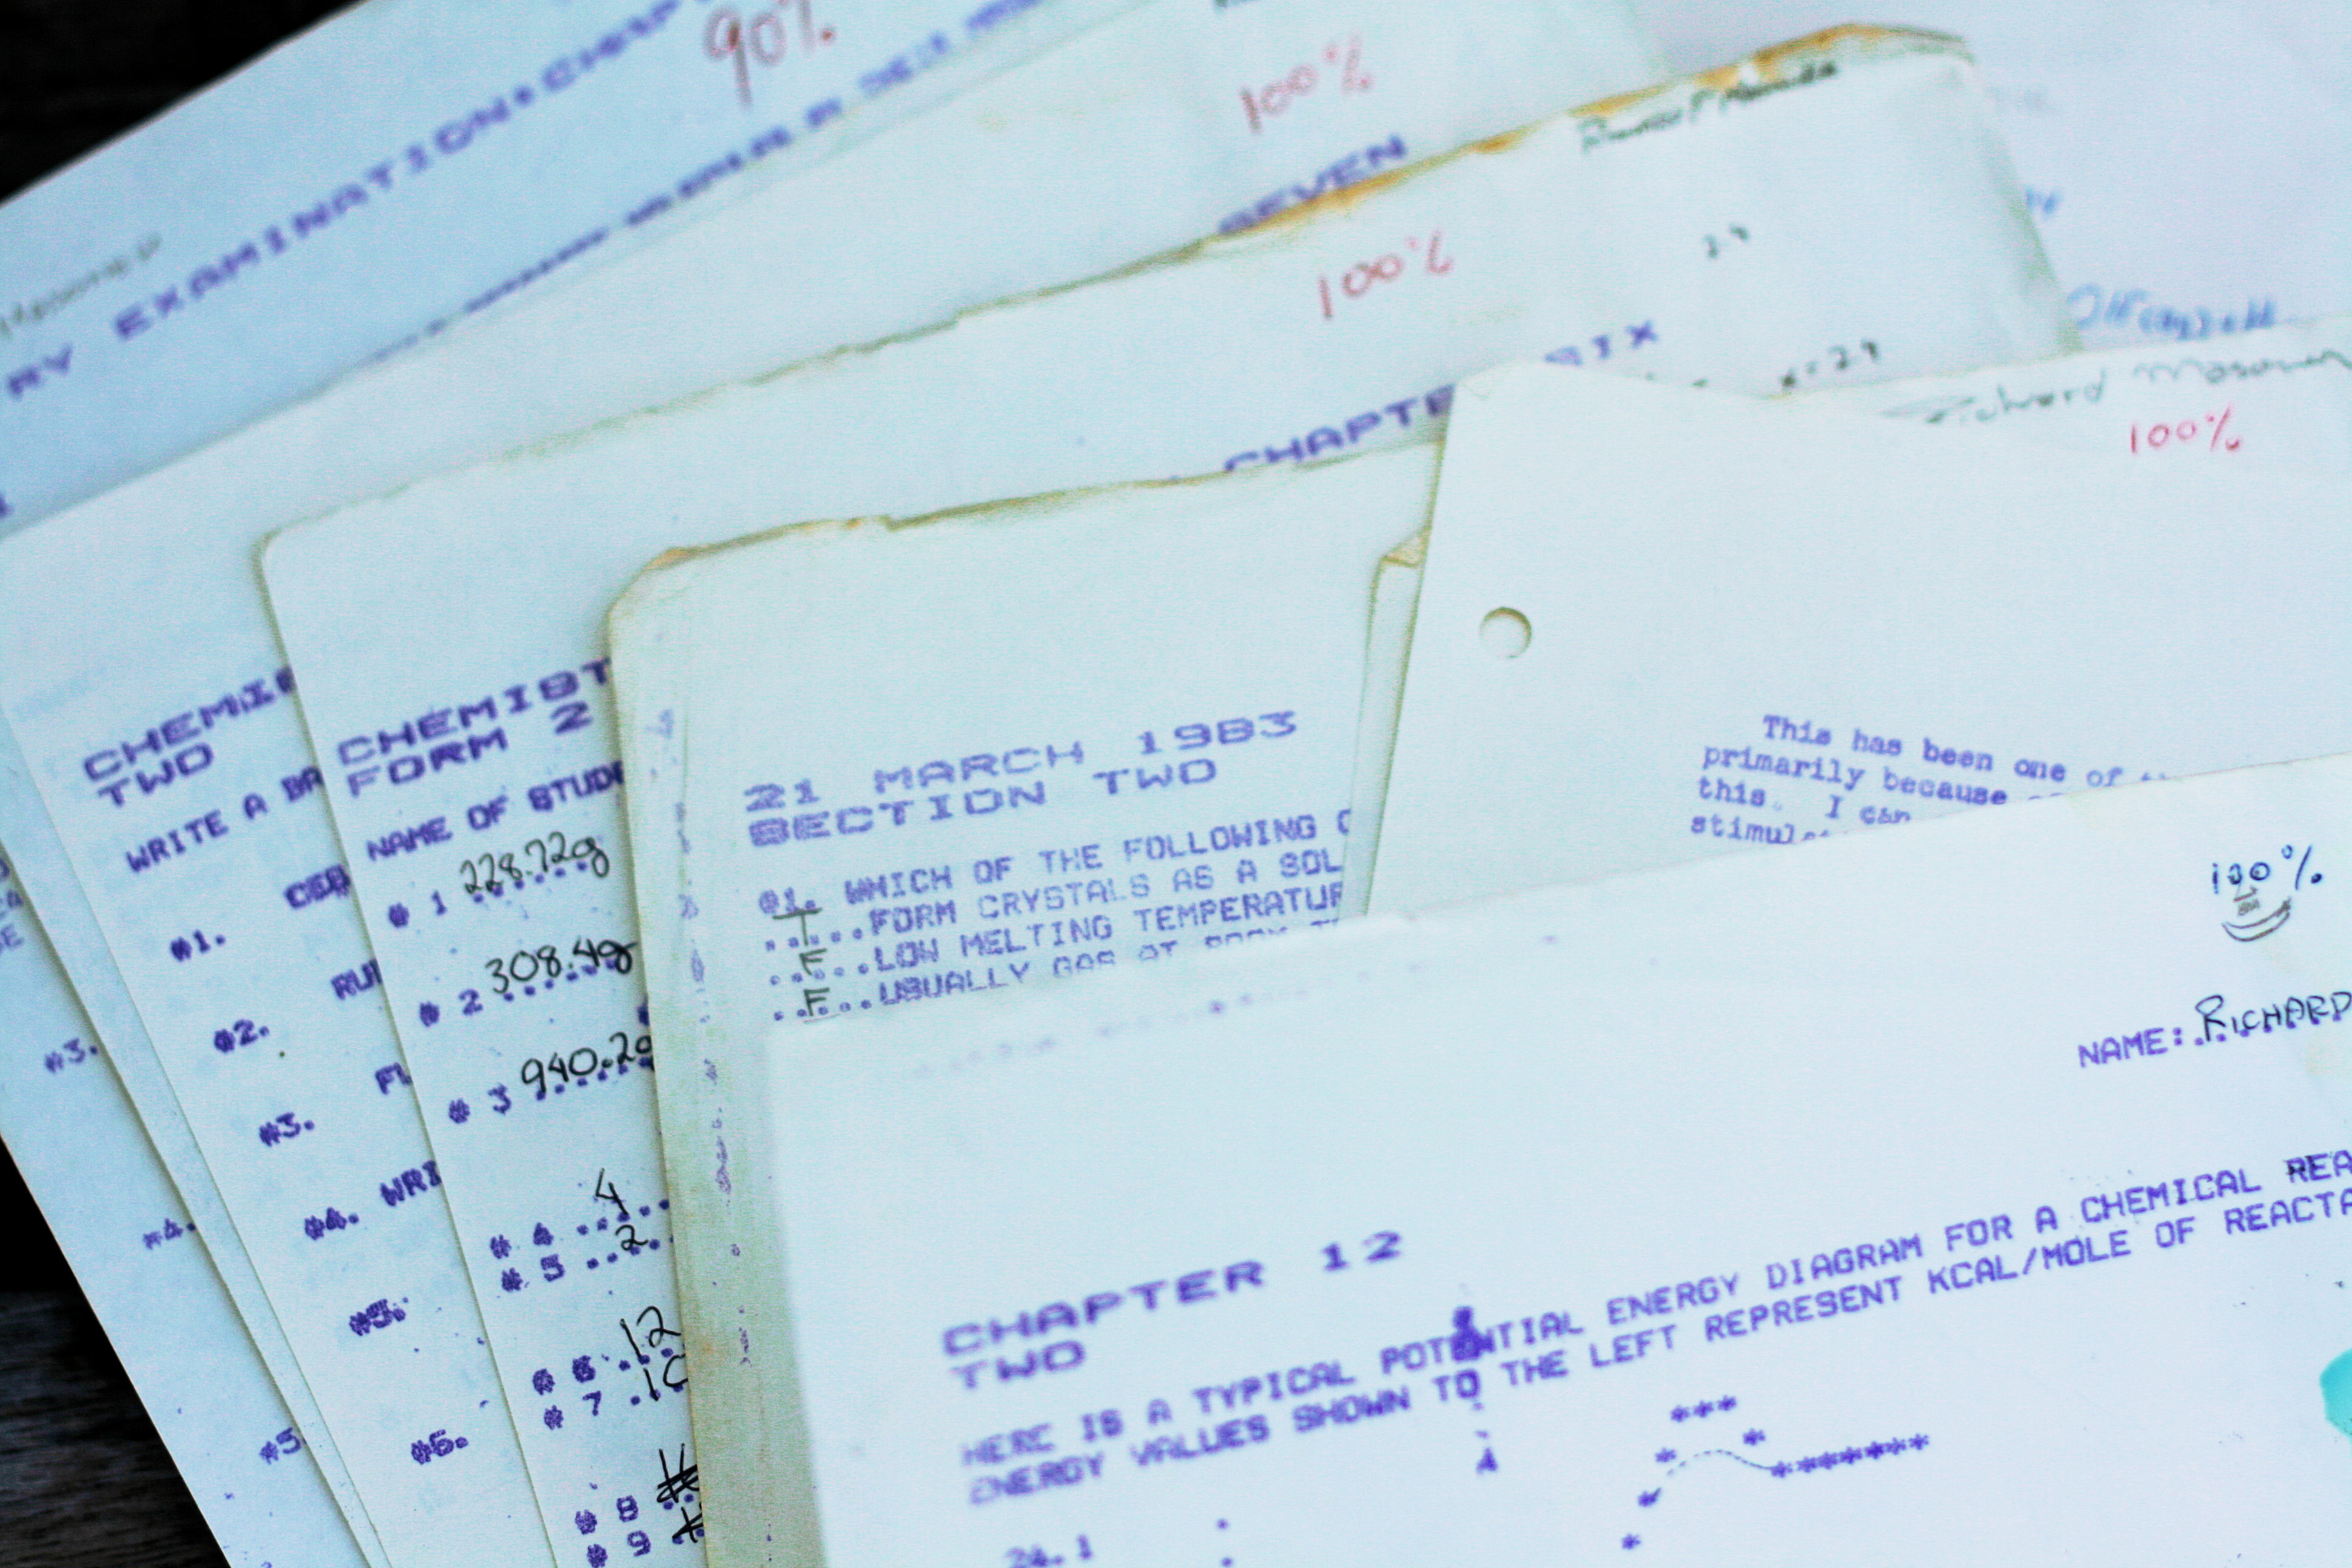 90%
RY EXAMINATION
100%
SEVEN
100%
SIX
CHAPTE
Richard
100%
CHEMIS
TWO
WRITE A BA
#1.
#2.
#3.
#4. WRI
#5.
#6.
#3.
#4.
#5
CHEMIST
FORM 2
NAME OF STUDE
# 1 228.72g
# 2 308.4g
# 3 940.2g
# 4 4
# 5 2
# 6 12
# 7 10
# 8
# 9
21 MARCH 1983
SECTION TWO
#1. WHICH OF THE FOLLOWING
T FORM CRYSTALS AS A SOL
F LOW MELTING TEMPERATUR
F USUALLY GAS AT ROOM
This has been one of
primarily because
this. I can
stimul
100%
NAME: RICHARD
CHAPTER 12
TWO
HERE IS A TYPICAL POTENTIAL ENERGY DIAGRAM FOR A CHEMICAL REA
ENERGY VALUES SHOWN TO THE LEFT REPRESENT KCAL/MOLE OF REACTA
24.1